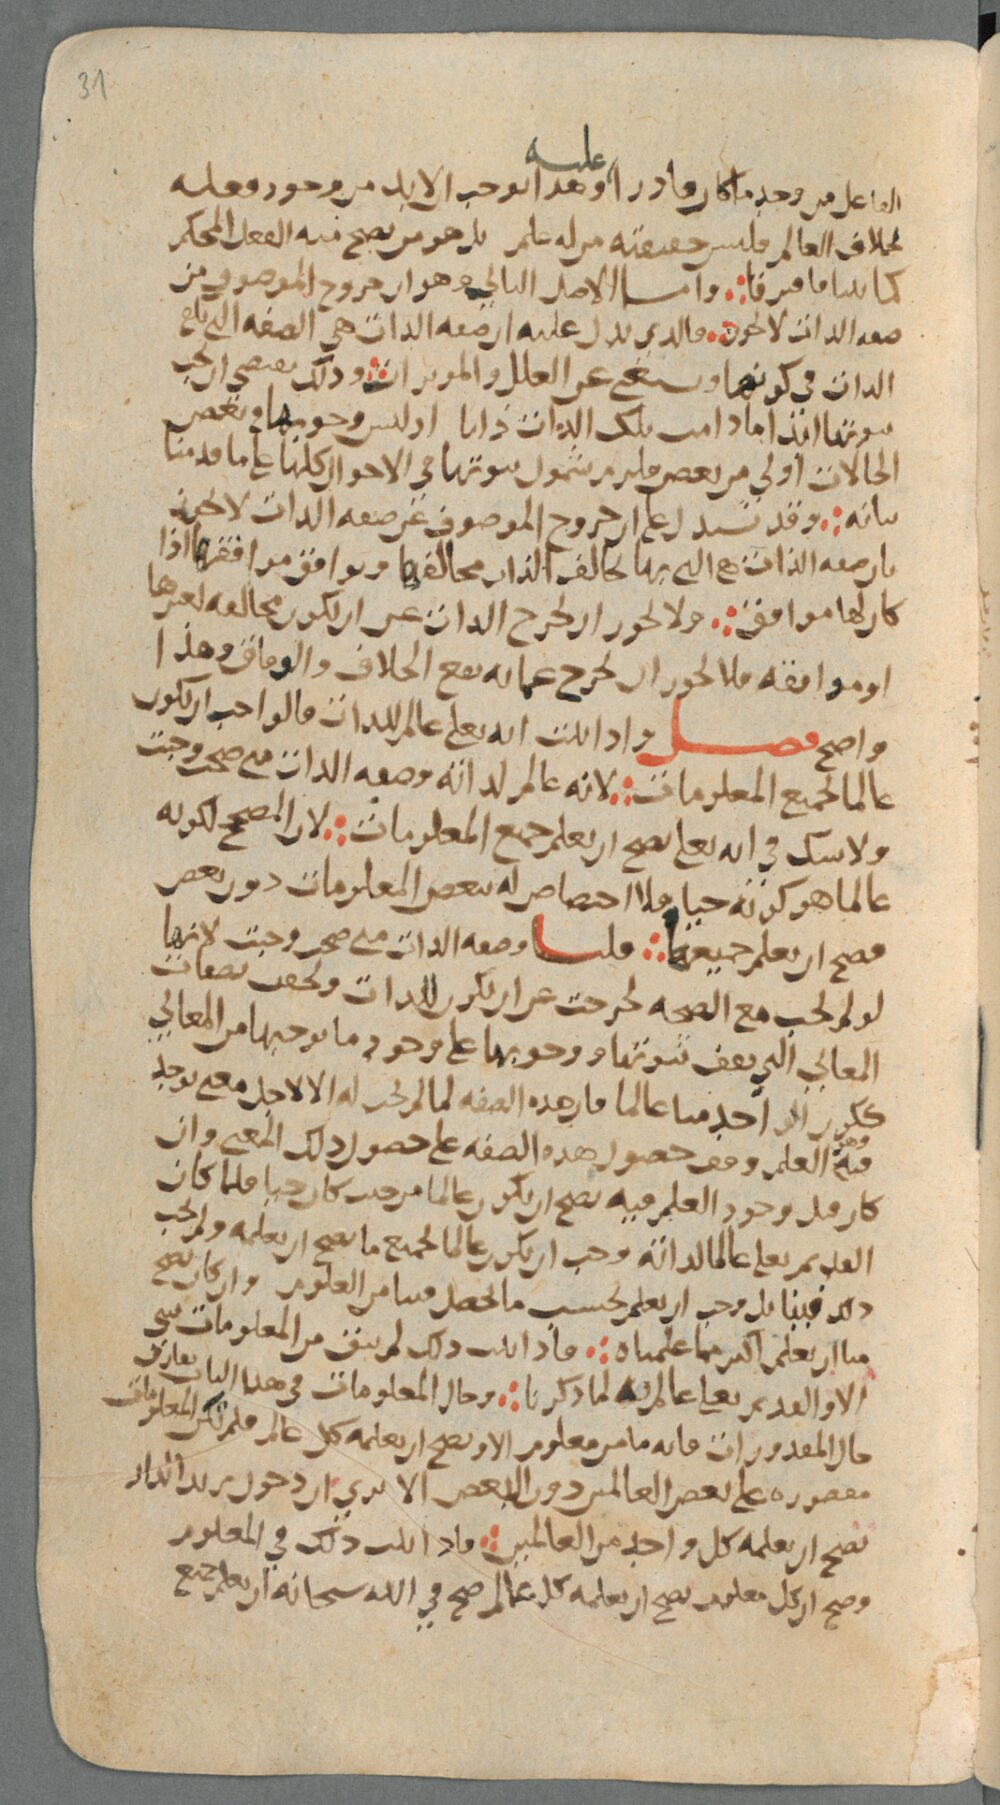 31
عليه
الفاعل من وجد ما كان قادرا وهذا يوجب الا بد من وجود فعله
بخلاف العالم فليس حقيقته من له علم بل هو من يصح منه الفعل المحكم
كما بينا فافترقا ؞ واما الاصل الثاني وهو ان خروج الموصوف من
صفة الذات لا يجوز ؞ فالذي يدل عليه ان صفة الذات هي الصفة التي
الذات في كونها وتستغني عن العلل والموثرات ؞ وذلك يقتضي ان يجب
ثبوتها ابدا ما دامت تلك الذات ذاتا اذ ليس وجوبها في بعض
الحالات اولى من بعض فلزم شمول ثبوتها في الاحوال كلها على ما قدمنا
بيانه ؞ وقد نستدل على ان خروج الموصوف عن صفة الذات لا يجوز
بان صفة الذات هي التي بها يخالف الذات مخالفها ويوافق موافقها اذا
كان لها موافق ؞ ولا يجوز ان تخرج الذات عن ان تكون مخالفة لغيرها
او موافقة فلا يجوز ان تخرج عما به يقع الخلاف والوفاق وهذا
واضح فصل واذا ثبت انه تعلى عالم للذات فالواجب ان يكون
عالما بجميع المعلومات ؞ لانه عالم لذاته وصفة الذات متى صحت وجبت
ولا شك في انه تعلى يصح ان يعلم جميع المعلومات ؞ لان المصحح لكونه
عالما هو كونه حيا فلا اختصاص له ببعض المعلومات دون بعض
فصح ان يعلم جميعها ؞ قلنا وصفة الذات متى صحت وجبت لانها
لو لم تجب مع الصحة لخرجت عن ان تكون للذات ولحقت بصفات
المعاني التي يقف ثبوتها ووجوبها على وجود ما يوجبها من المعاني
ككون الواحد منا عالما فان هذه الصفة لما لم تجب له الا لاجل معنى يوجد
فيه وهو العلم وقف حصول هذه الصفة على حصول ذلك المعنى وان
كان قبل وجود العلم فيه يصح ان يكون عالما من حيث كان حيا فلما كان
القديم تعلى عالما لذاته وجب ان يكون عالما بجميع ما يصح ان يعلمه ولم يجب
ذلك فينا بل وجب ان يعلم بحسب ما يحصل فينا من العلوم وان كان يصح
منا ان يعلم اكثر مما علمناه ؞ فاذا ثبت ذلك لم يبق من المعلومات شي
الا والقديم تعلى عالم به لما ذكرنا ؞ وحال المعلومات في هذا الباب يفارق
حال المقدورات فانه ما من معلوم الا ويصح ان يعلمه كل عالم فلم تكن المعلومات
مقصورة على بعض العالمين دون البعض الا ترى ان دخول زيد الدار
يصح ان يعلمه كل واحد من العالمين ؞ فاذا ثبت ذلك في المعلوم
وصح ان كل معلوم يصح ان يعلمه كل عالم صح في الله سبحانه ان يعلم جميع